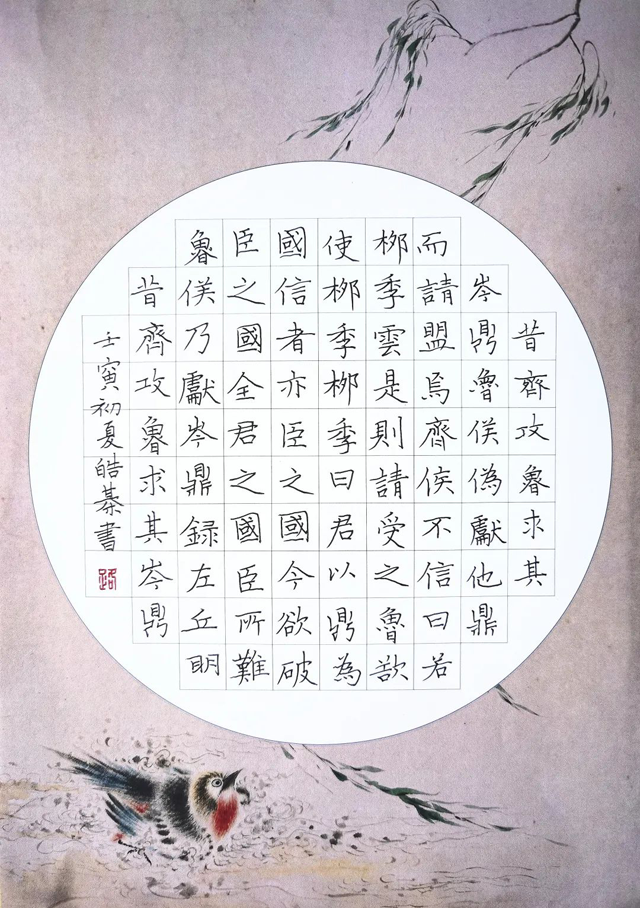 昔齊攻魯求其
岑鼎魯侯偽獻他鼎
而請盟焉齊侯不信曰若
栁季雲是則請受之魯欲
使栁季栁季曰君以鼎為
國信者亦臣之國今欲破
臣之國全君之國臣所難
魯侯乃獻岑鼎録左丘明
昔齊攻魯求其岑鼎
壬寅初夏皓書